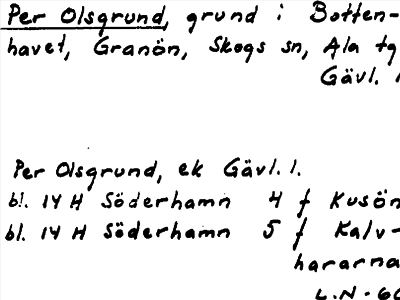 Per Olsgrund, grund i Botten-
havet, Granön, Skogs sn, Ala tg
Gävl. l
Per Olsgrund, ek Gävl. l.
bl. 14 H Söderhamn 4 f Kusön
bl. 14 H Söderhamn 5 f Kalv-
hararna
L.N. 60